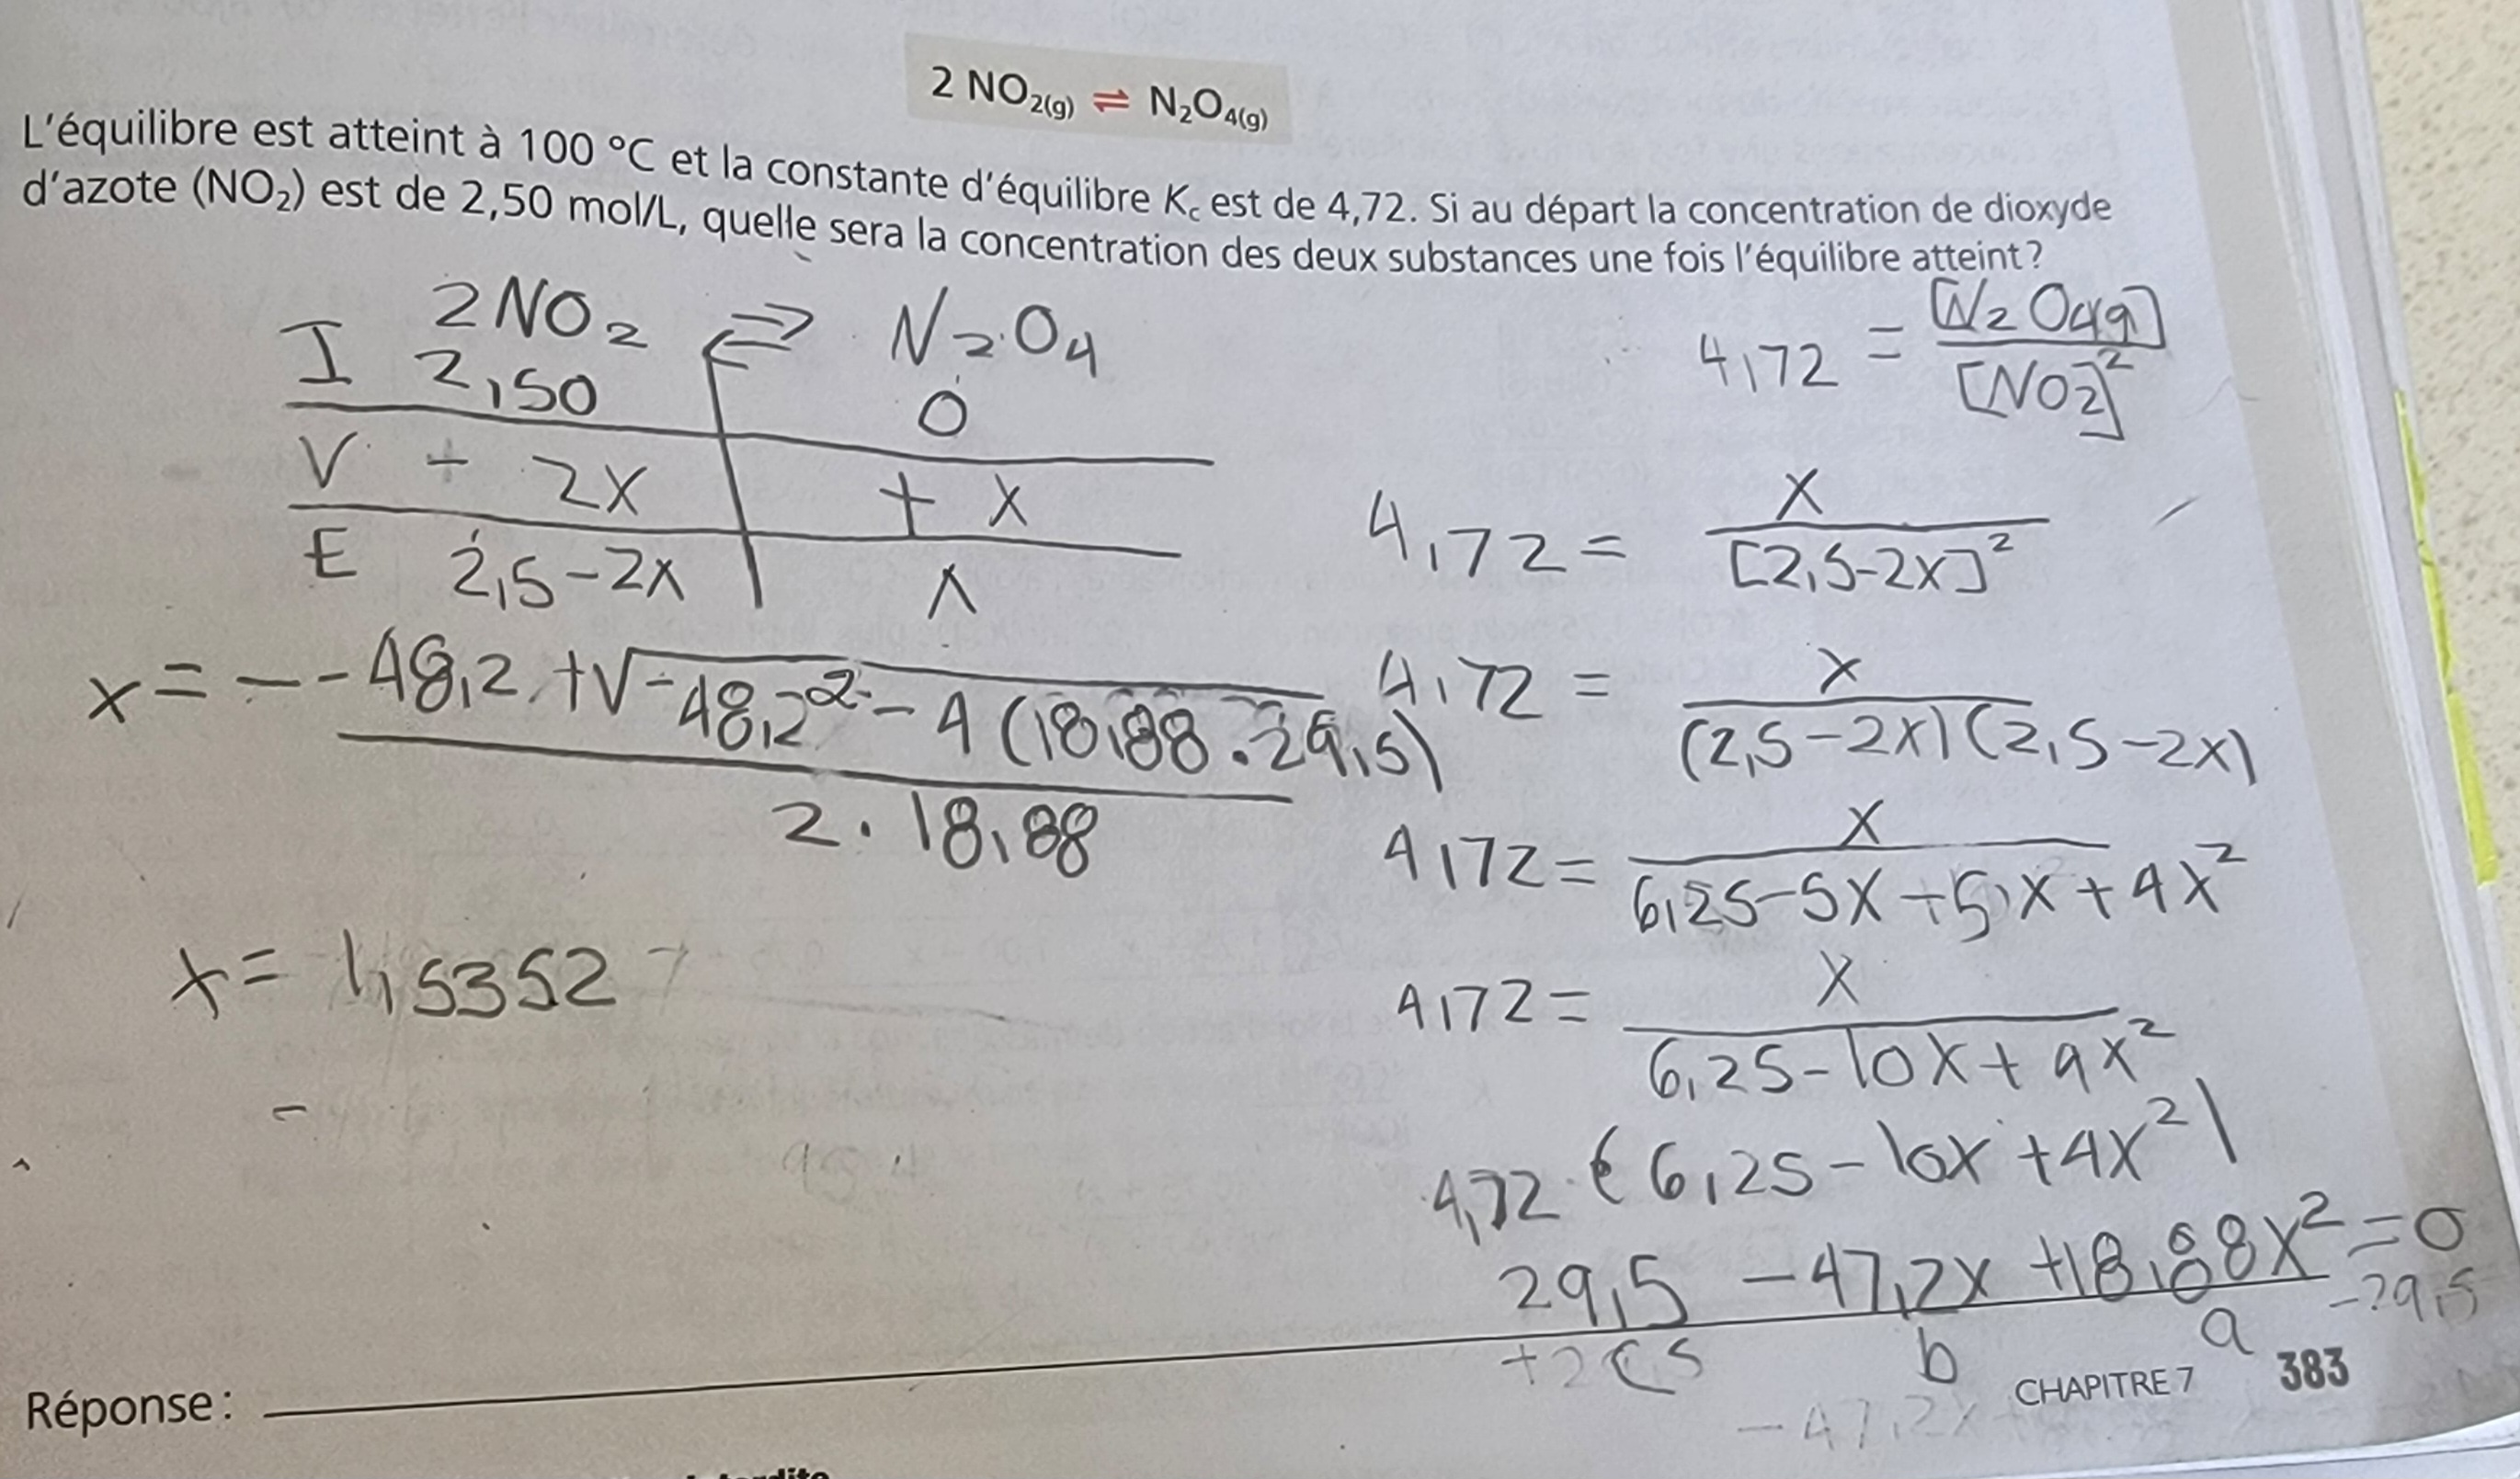 2 NO2(g) ⇌ N2O4(g)
L'équilibre est atteint à 100 °C et la constante d'équilibre Kc est de 4,72. Si au départ la concentration de dioxyde
d'azote (NO2) est de 2,50 mol/L, quelle sera la concentration des deux substances une fois l'équilibre atteint?
2NO2 ⇌ N2O4
I 2,50 0
V - 2x + x
E 2,5-2x x
x = - -48,2 +√-48,2² - 4 (18,88 · 29,5)
2 · 18,88
x = 1,53527
4,72 = [N2O4g]
[NO2]²
4,72 = x
[2,5-2x]²
4,72 = x
(2,5-2x)(2,5-2x)
4,72 = x
6,25-5x-5x+4x²
4,72 = x
6,25-10x+4x²
4,72 · (6,25-10x+4x²)
29,5 -47,2x +18,88x² =0
-29,5
c b a
-47,2x
Réponse :
CHAPITRE 7 383